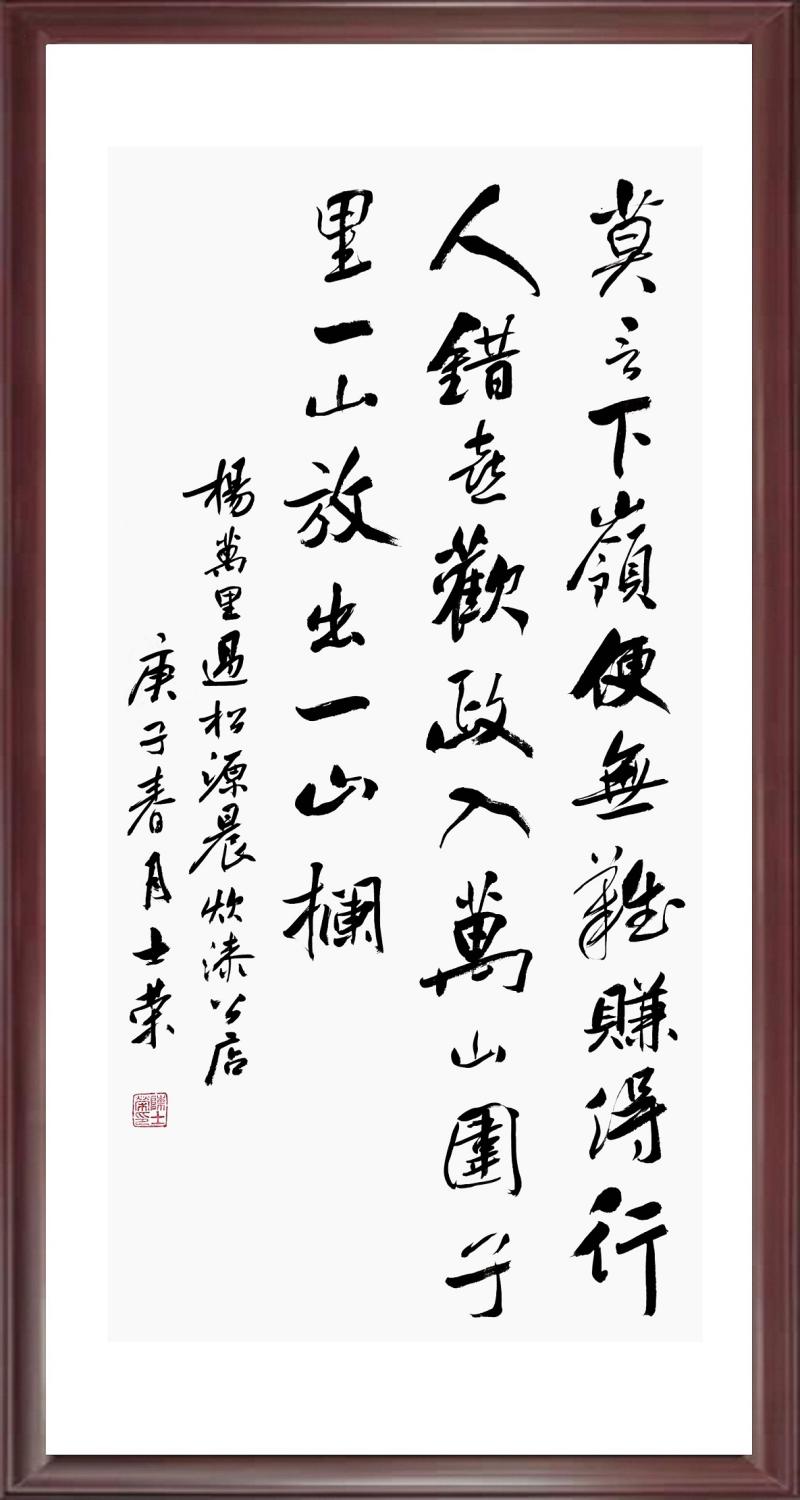 莫言下嶺便無難賺得行
人錯喜歡政入萬山圍子
里一山放出一山欄
楊萬里過松源晨炊漆公店
庚子春月士榮
陳士榮印